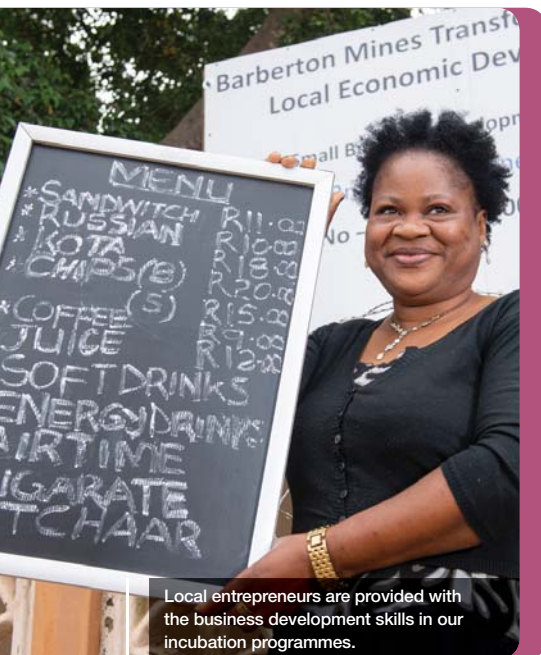 Barberton Mines Transfo
Local Economic Dev
Small B
No –
MENU
*SANDWITCH R11.00
*RUSSIAN R10.00
*KOTA R18.00
*CHIPS(B) R20.00
(S) R15.00
*COFFEE R9.00
JUICE R12.00
SOFT DRINKS
ENERGY DRINKS
AIRTIME
IGARATE
TCHAAR
Local entrepreneurs are provided with
the business development skills in our
incubation programmes.